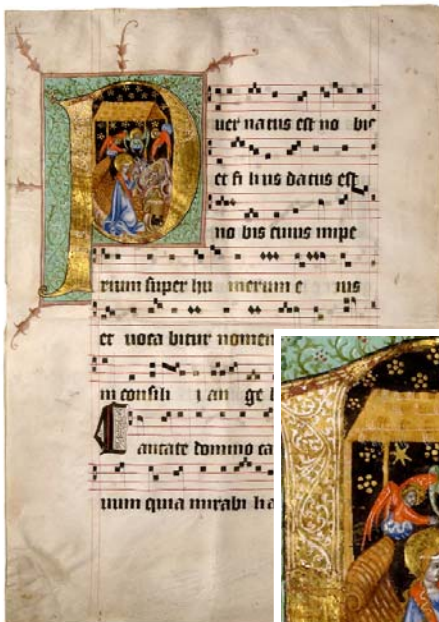 Puer na tus est no bis
et fi li us da tus est
no bis cuius impe
rium super hu merum e ius
et uoca bitur nomen
ni consili i an ge
Cantate domino ca
uum quia mirabi lia